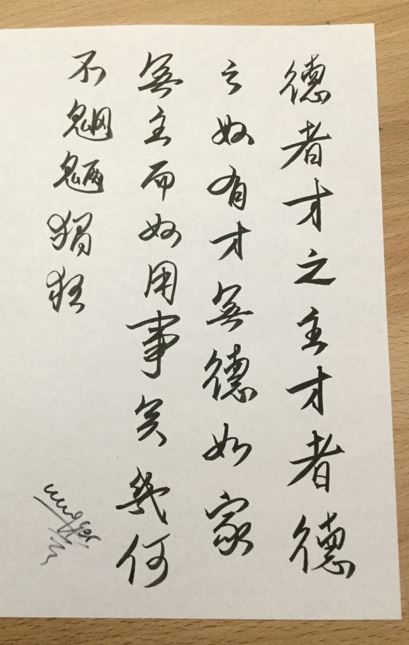 德者才之主才者德
之奴有才無德如家
無主而奴用事矣幾何
不魍魎猖狂